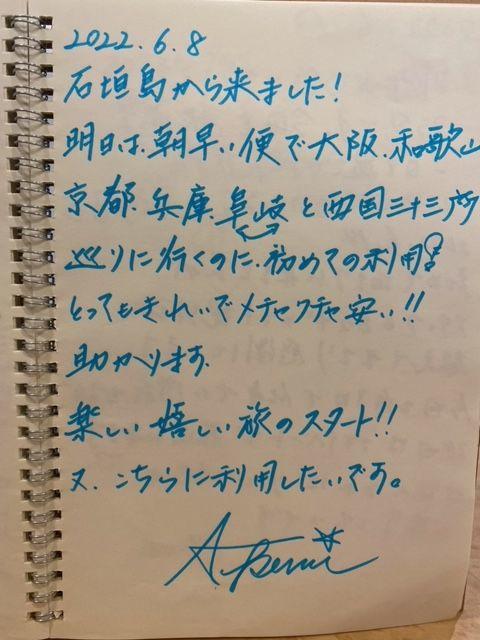 2022.6.8
石垣島から来ました!
明日は、朝早い便で大阪、和歌山
京都、兵庫、阜岐と西国三十三所
巡りに行くのに、初めての利用!
とってもきれいでメチャクチャ安い!!
助かります。
楽しい嬉しい旅のスタート!!
又、こちらに利用したいです。